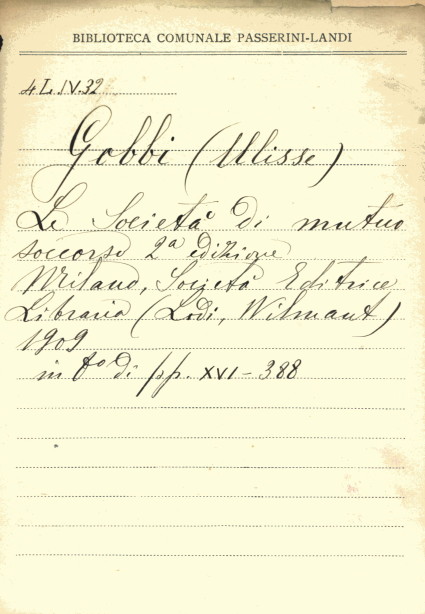 BIBLIOTECA COMUNALE PASSERINI-LANDI
4 L. IV. 32
Gobbi (Ulisse)
Le Società di mutuo
soccorso 2ª edizione
Milano, Società Editrice
Libraria (Lodi, Wilmant)
1909
in 8º di pp. XVI - 388